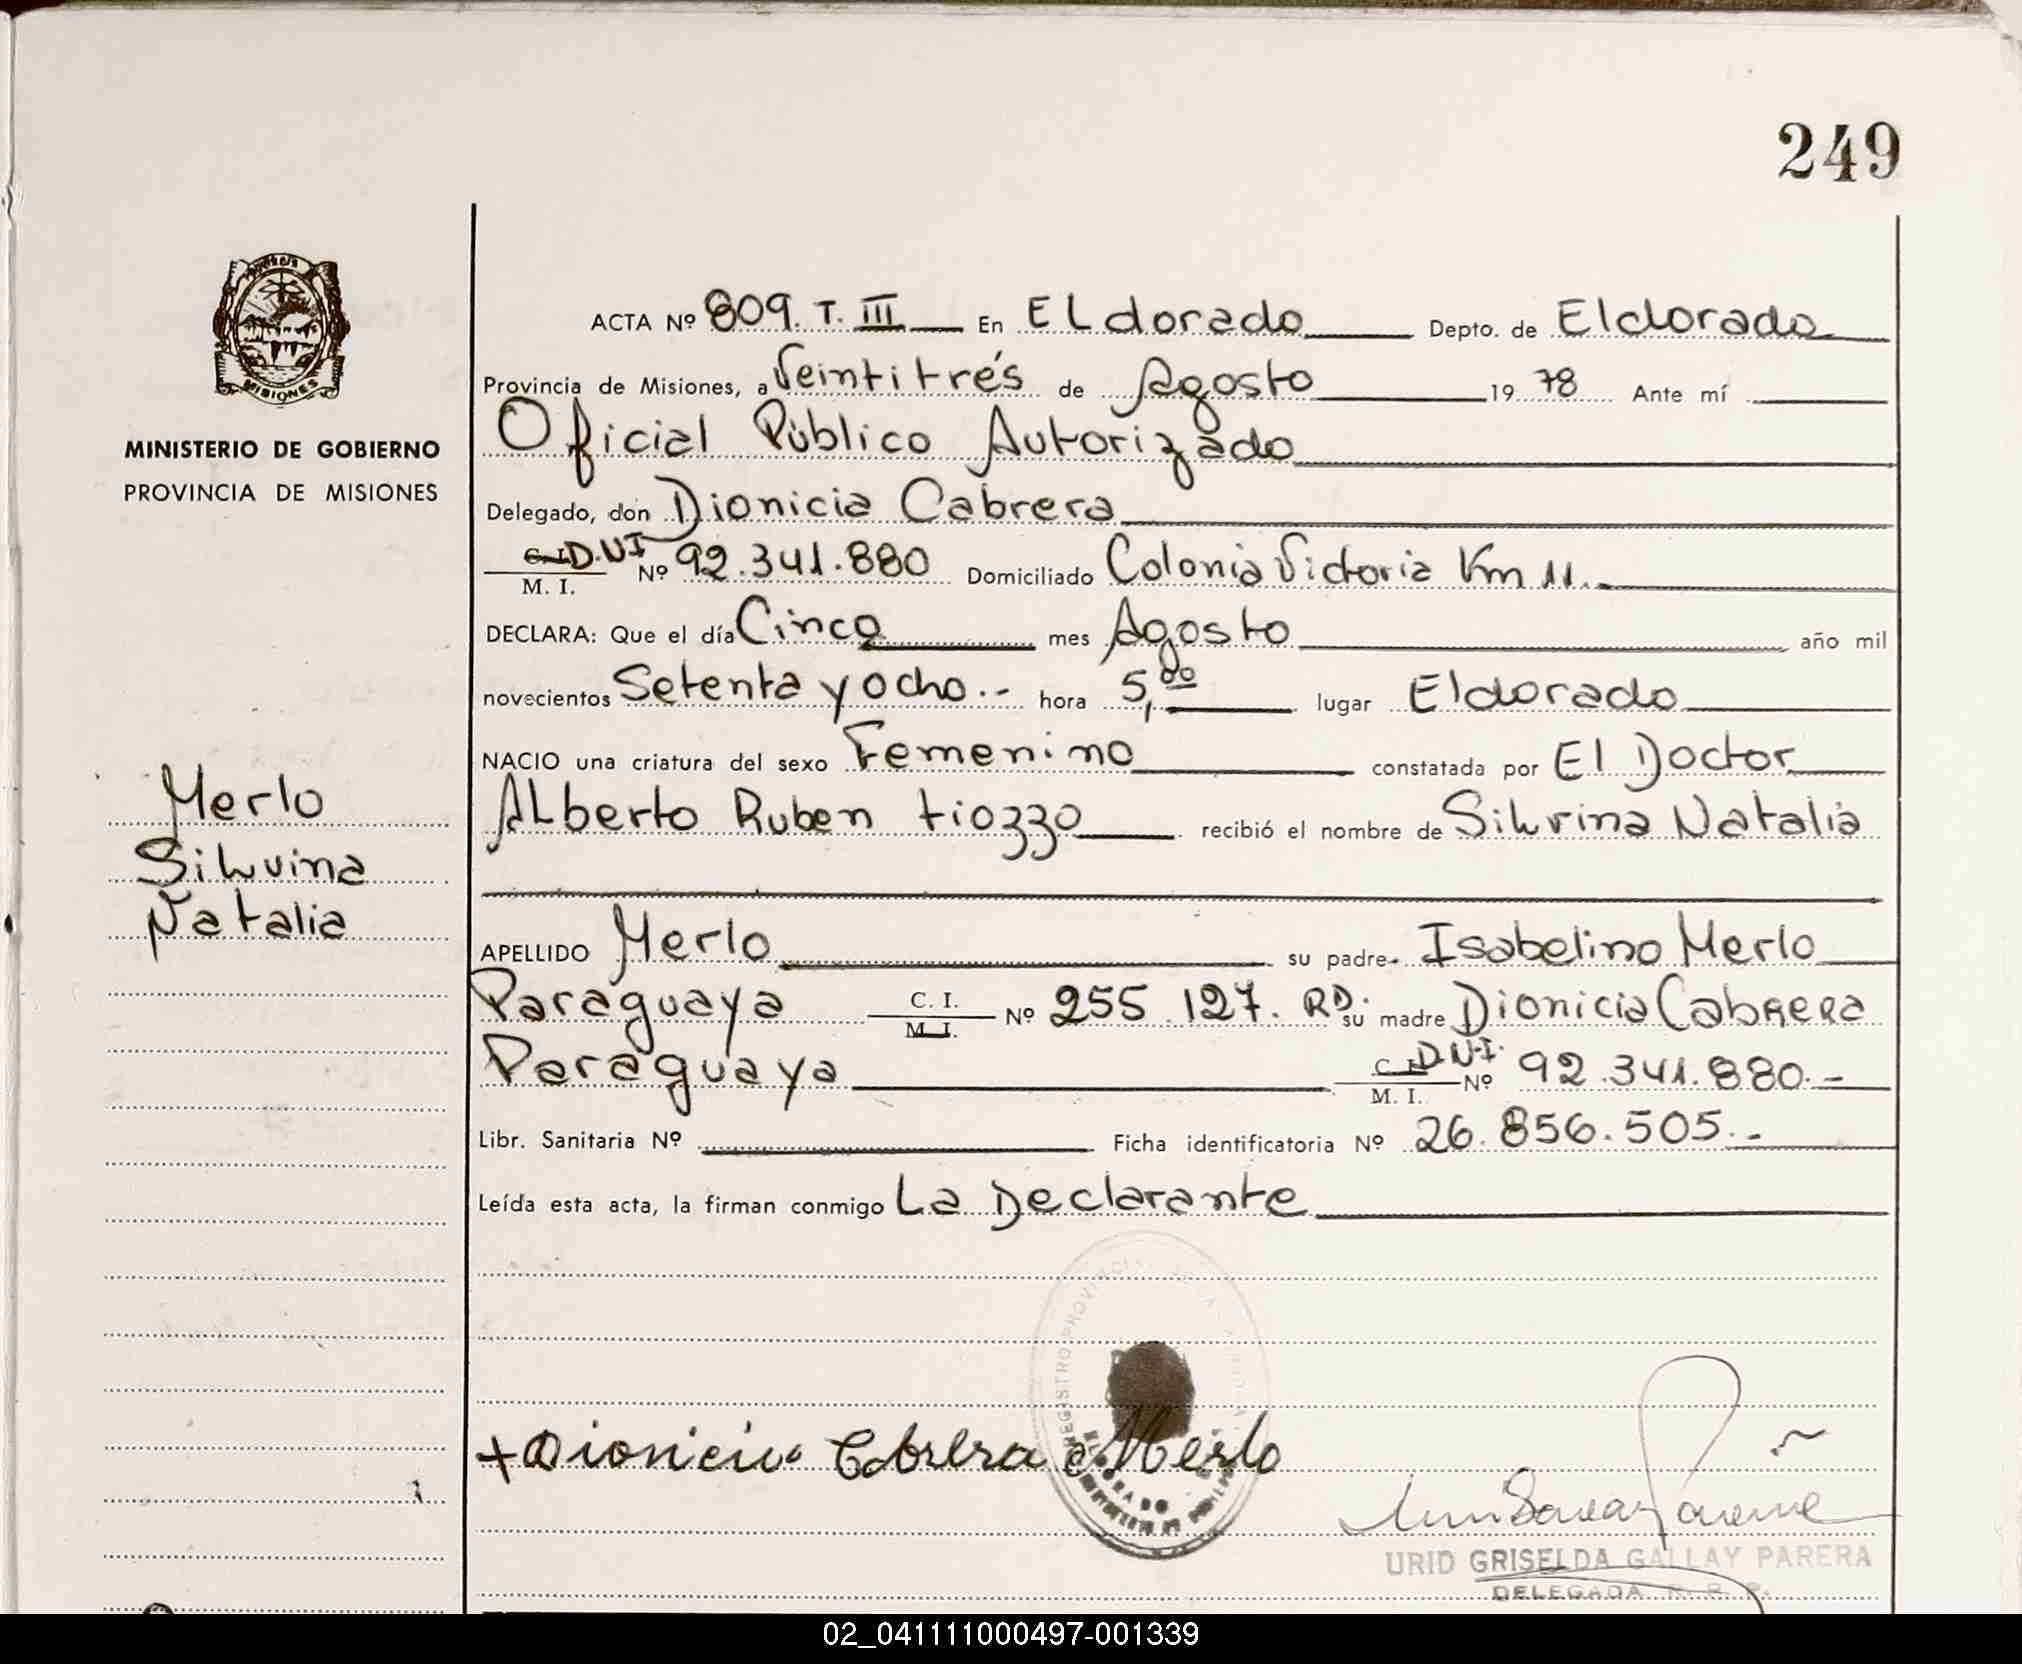 249
ACTA Nº 809. T. III En ELdorado Depto. de Eldorado
Provincia de Misiones, a Veintitrés de Agosto 19 78 Ante mí
Oficial Público Autorizado
MINISTERIO DE GOBIERNO
PROVINCIA DE MISIONES
Delegado, don Dionicia Cabrera
C.I. D.N.I M. I. Nº 92.341.880 Domiciliado Colonia Victoria Km 11.-
DECLARA: Que el día Cinco mes Agosto año mil
novecientos Setenta y ocho.- hora 5,00 lugar Eldorado
NACIO una criatura del sexo Femenino constatada por El Doctor
ALberto Ruben tiozzo recibió el nombre de Silvrina Natalia
Merlo
Siluvina
Natalia
APELLIDO Merlo su padre Isabelino Merlo
Paraguaya C. I. M. I. Nº 255.127. RD. su madre Dionicia Cabrera
Paraguaya C.I. D.N.I. M. I. Nº 92.341.880.-
Libr. Sanitaria Nº Ficha identificatoria Nº 26.856.505.-
Leída esta acta, la firman conmigo La Declarante
+Dionicia Cabrera de Merlo
URID GRISELDA GALLAY PARERA
DELEGADA R. P. P.
02_041111000497-001339